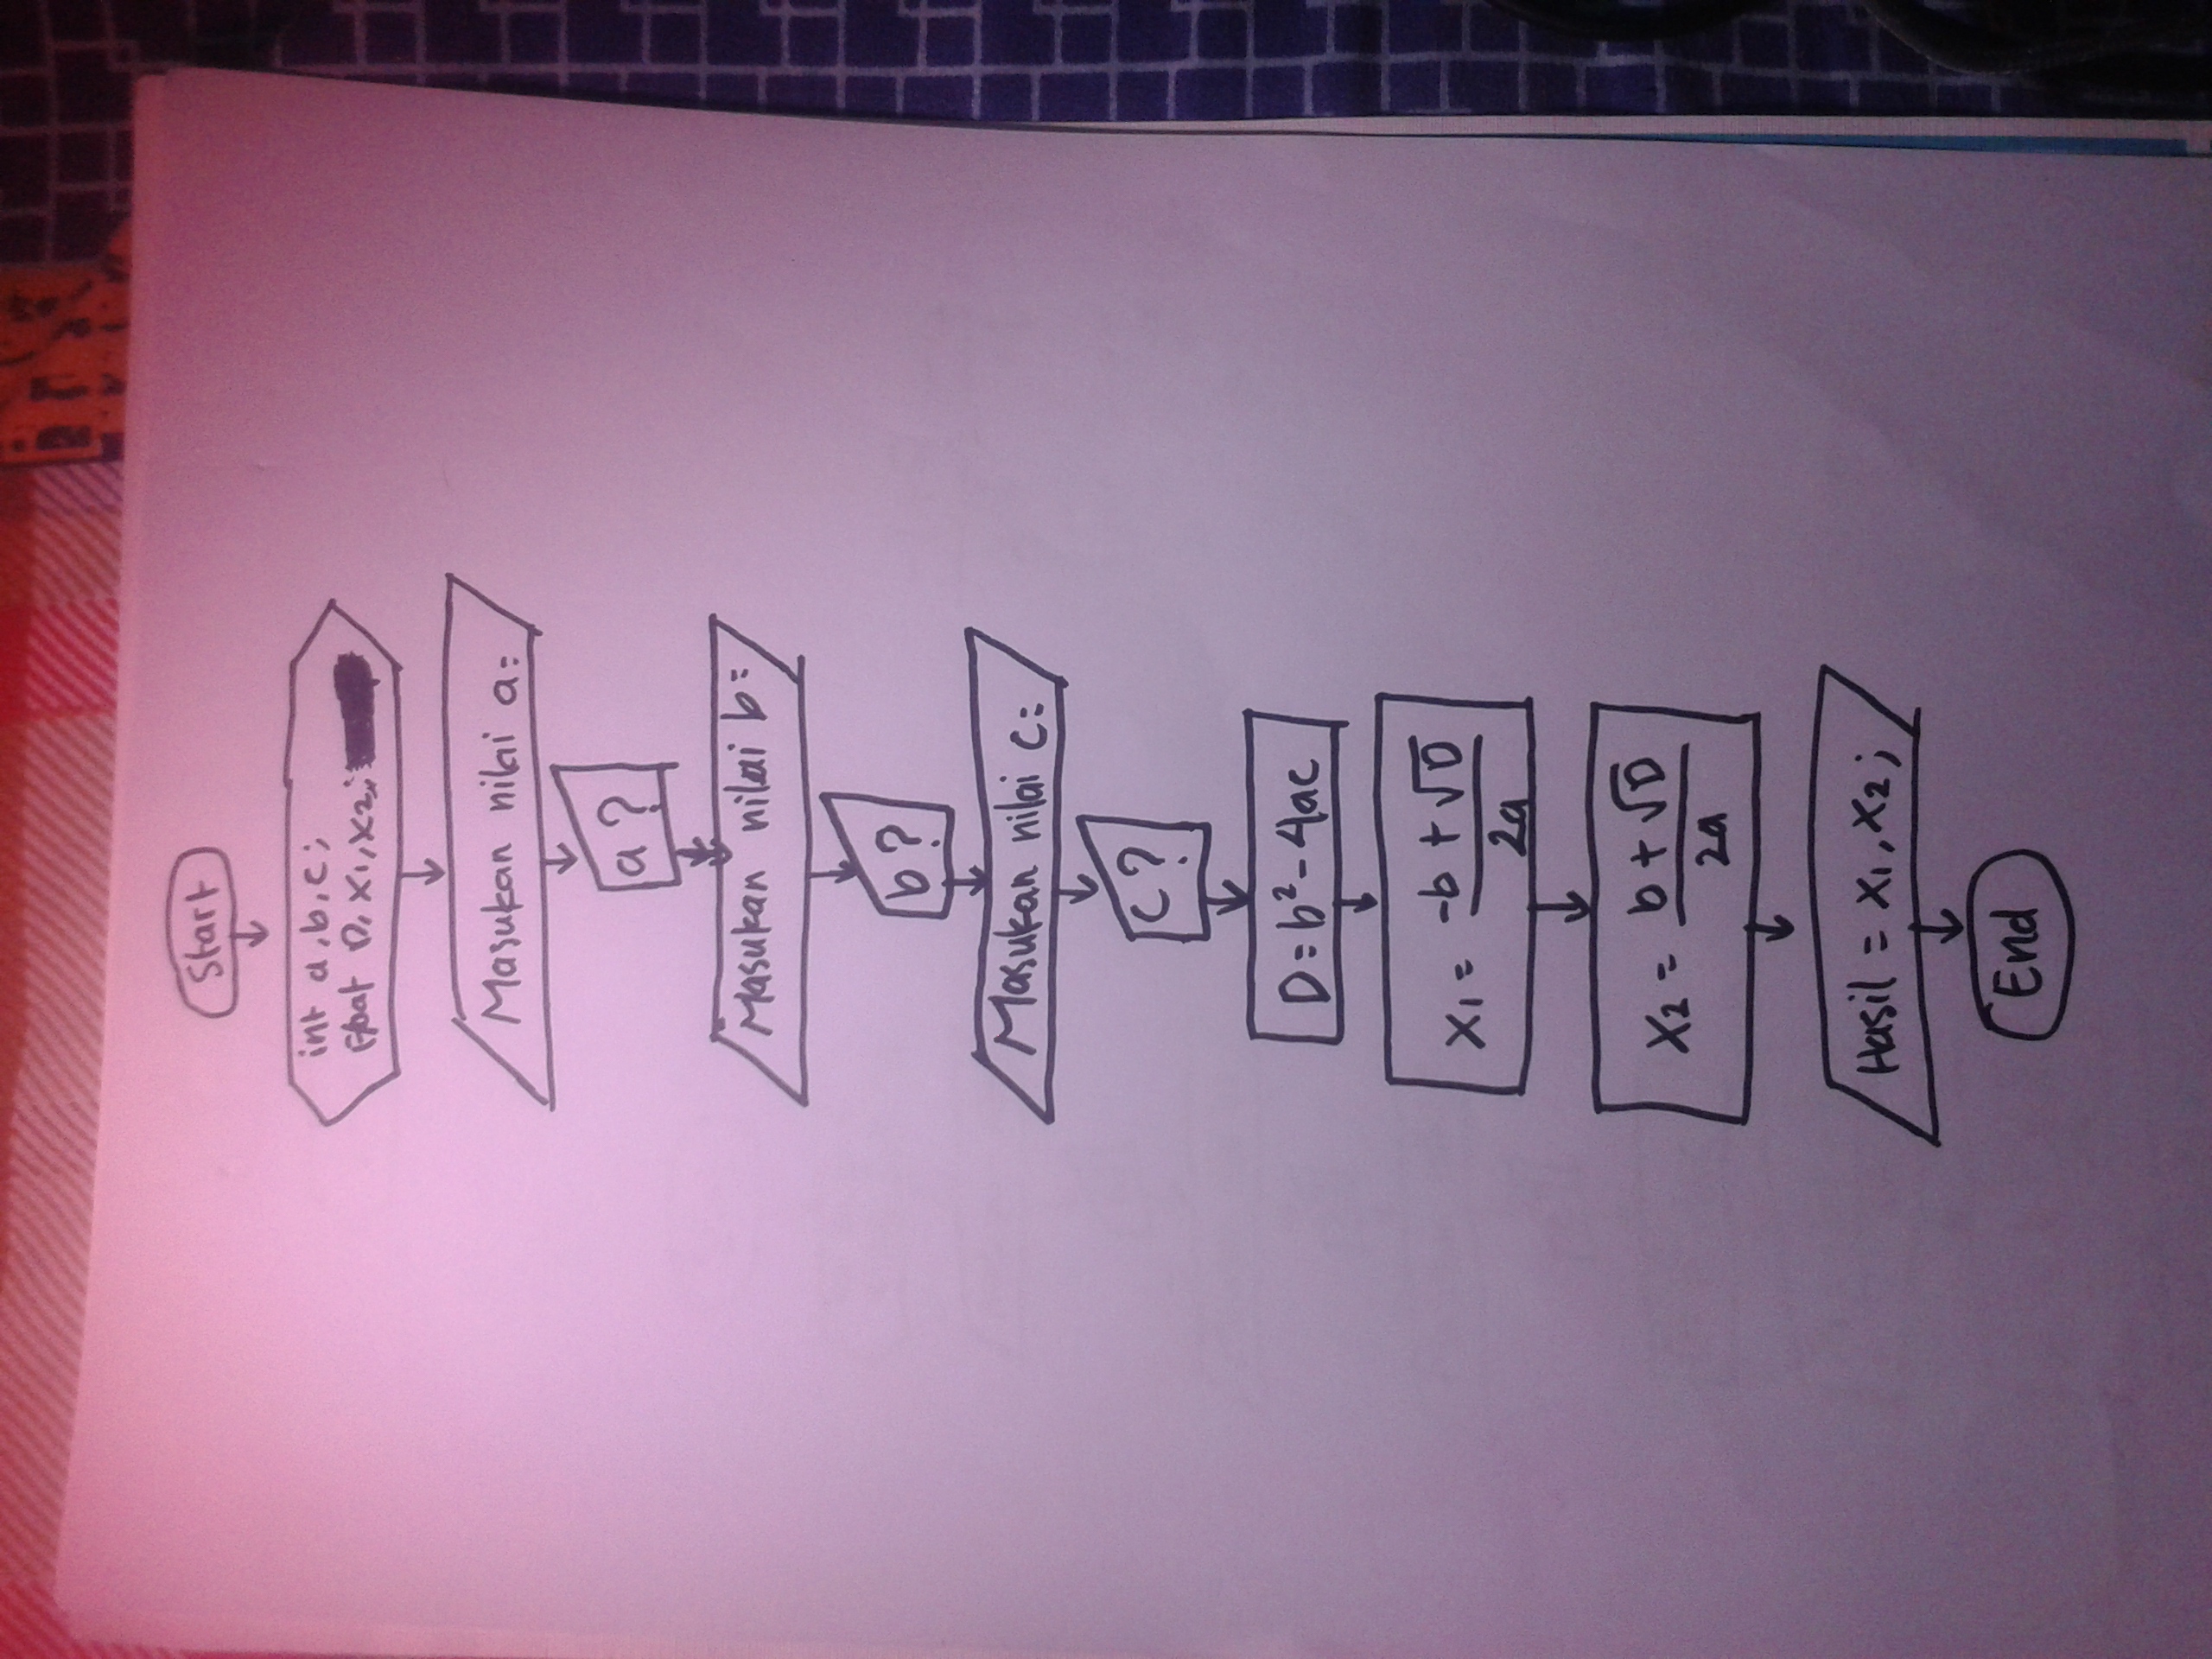 Start
int a,b,c;
float D, X₁, X₂;
Masukan nilai a=
a ?
Masukan nilai b=
b ?
Masukan nilai c=
c ?
D = b² - 4ac
X₁ = -b + √D
2a
X₂ = b + √D
2a
Hasil = X₁, X₂;
End